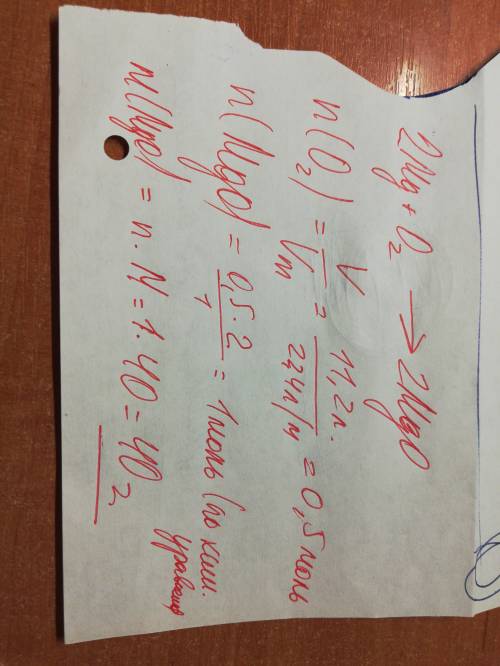 2Mg + O₂ → 2MgO
n(O₂) = V/Vm = 11,2л./22,4л/м = 0,5 моль
n(MgO) = 0,5·2/1 = 1 моль (по хим. уравнению
m(MgO) = n·M = 1·40 = 40 г.